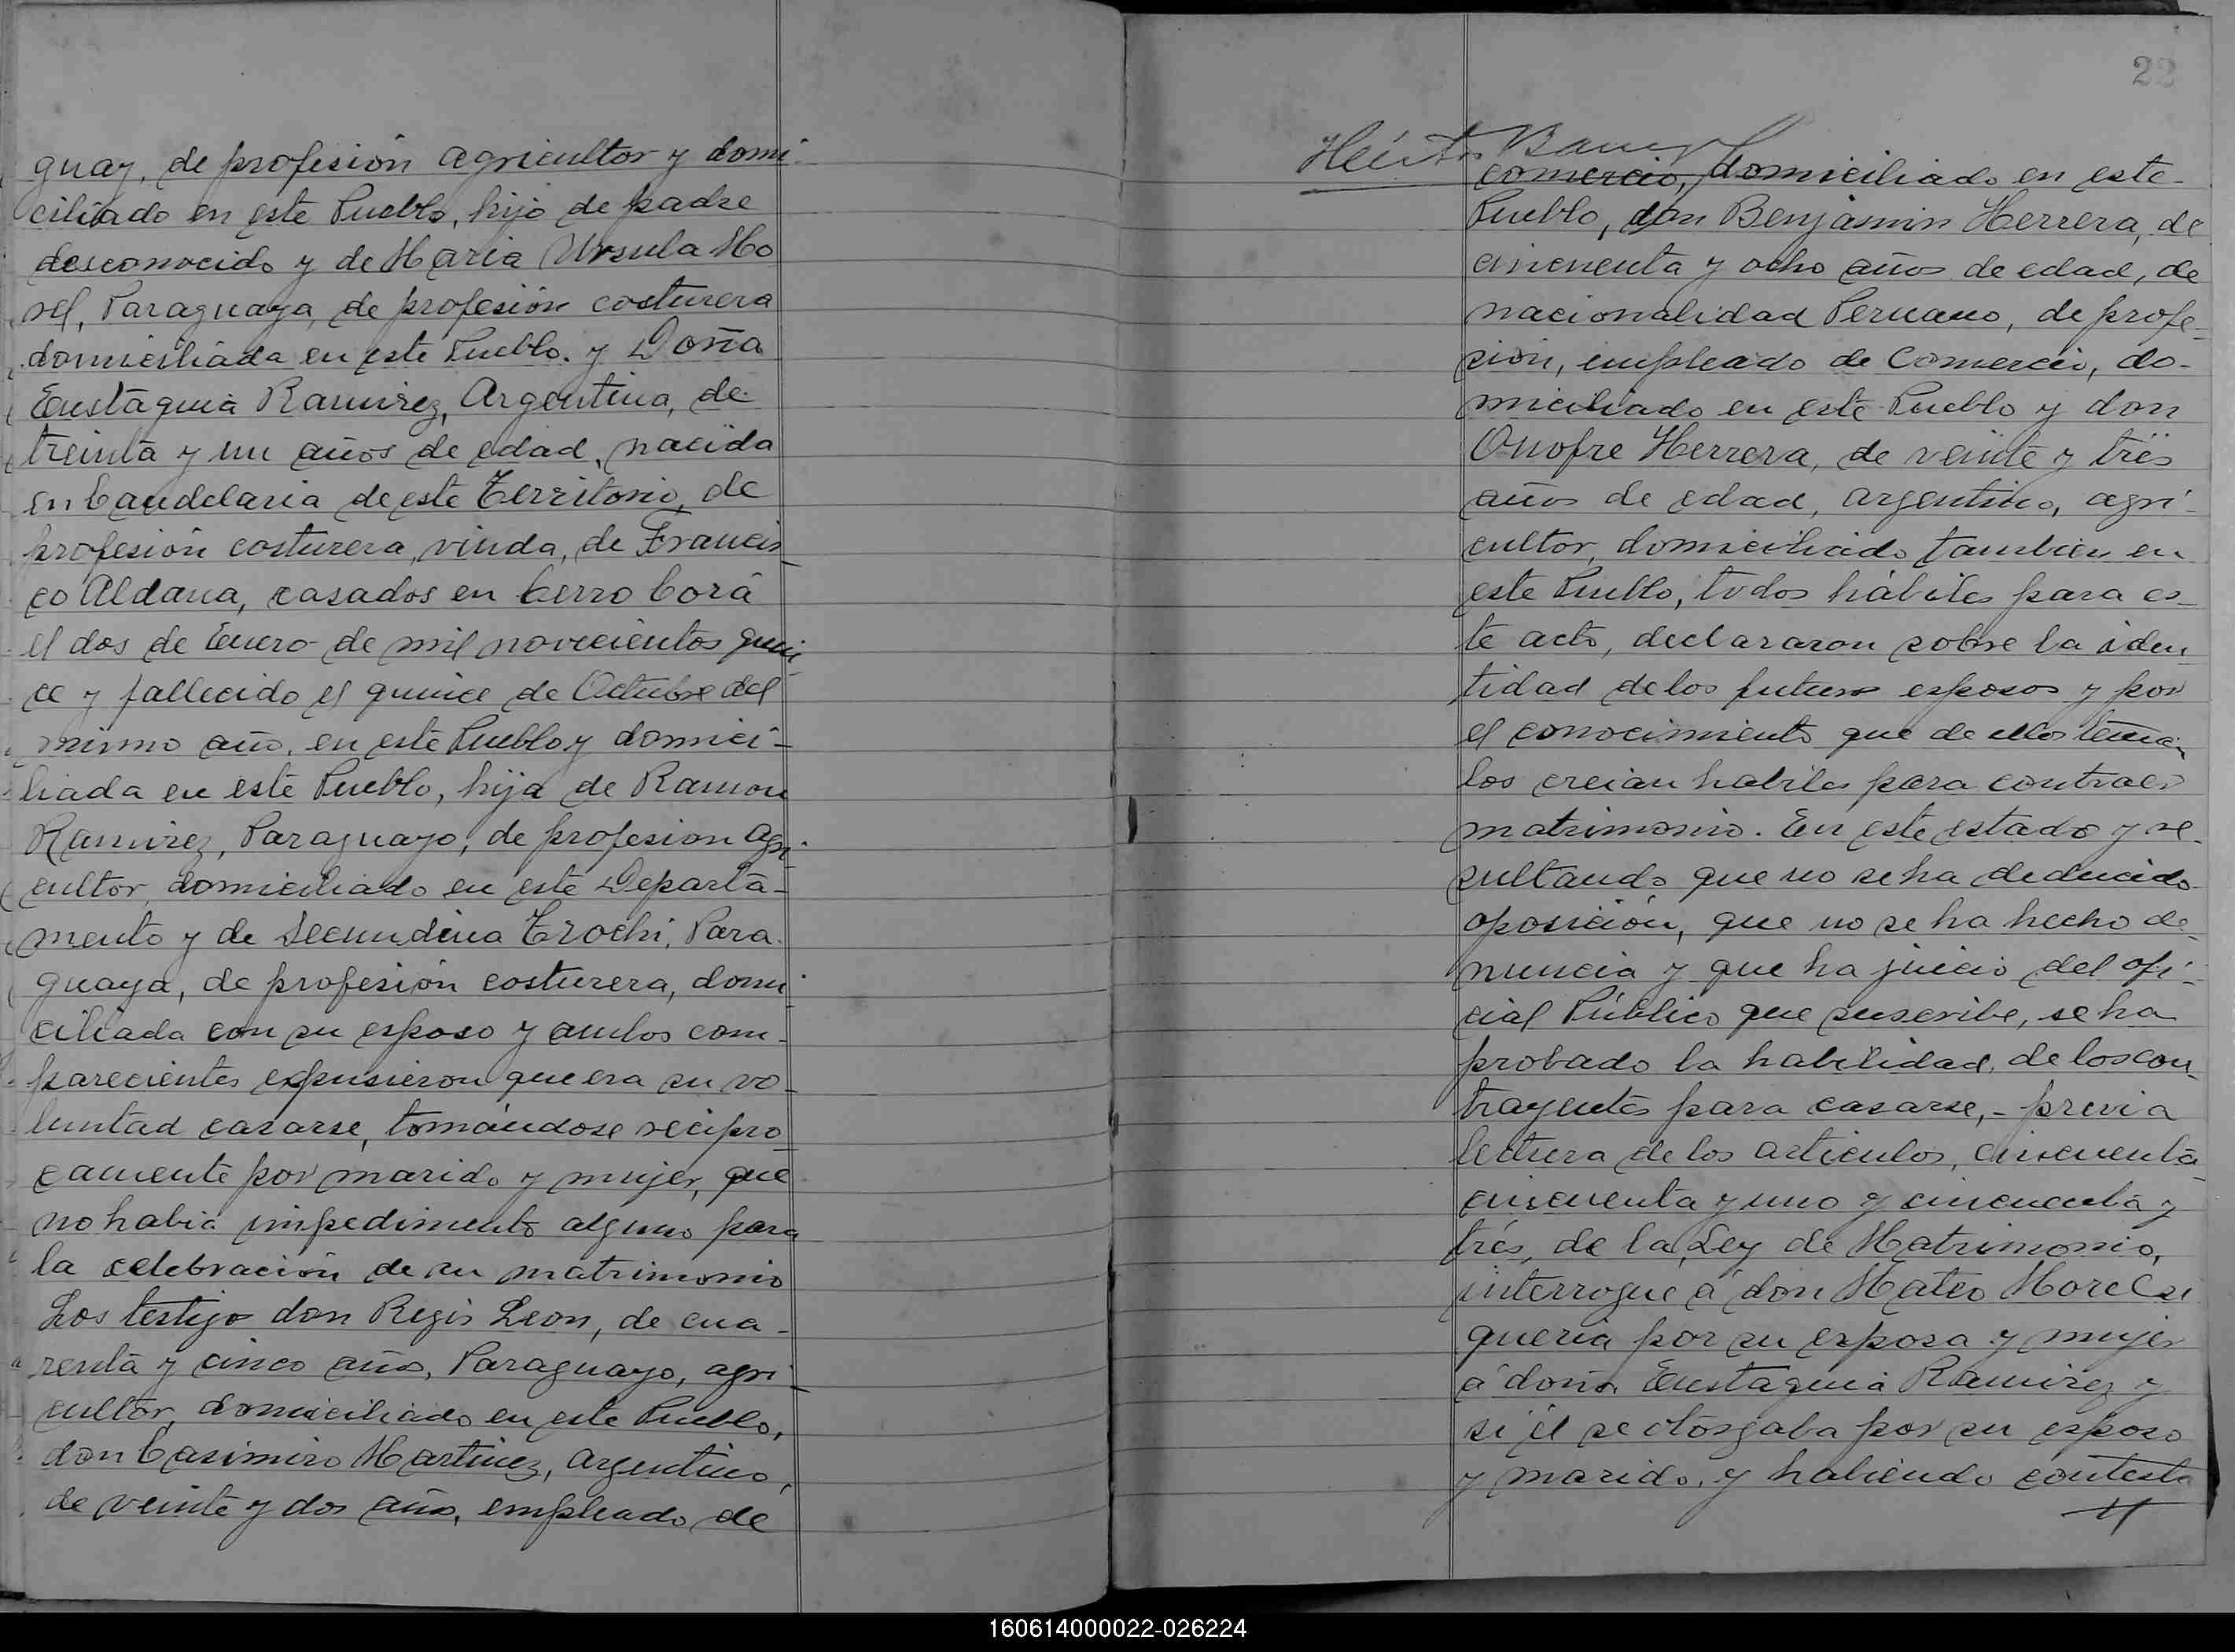 guay, de profesión agricultor y domi-
ciliado en este Pueblo, hijo de padre
desconocido y de Maria Ursula Mo
rel, Paraguaya, de profesión costurera
domiciliada en este Pueblo. y Doña
Eustaquia Ramirez, Argentina, de
treinta y un años de edad, nacida
en Candelaria de este Territorio, de
profesión costurera, viuda, de Francis
co Aldana, casados en Cerro Corá
el dos de Enero de mil novecientos quin
ce y fallecido el quince de Octubre del
mismo año, en este Pueblo y domici-
liada en este Pueblo, hija de Ramon
Ramirez, Paraguayo, de profesion agri-
cultor, domiciliado en este Departa-
mento y de Secundina Trochi, Para
guaya, de profesión costurera, domi-
ciliada con su esposo y ambos com-
parecientes expusieron que era su vo-
luntad casarse, tomándose recipro
camente por marido y mujer, que
no habia impedimento alguno para
la celebración de su matrimonio
Los testigo don Regis Leon, de cua-
renta y cinco años, Paraguayo, agri-
cultor, domiciliado en este Pueblo,
don Casimiro Martinez, argentino,
de veinte y dos años, empleado de
22
comercio, domiciliado en este
Pueblo, don Benjamin Herrera, de
cincuenta y ocho años de edad, de
nacionalidad Peruano, de profe-
sion, empleado de Comercio, do-
miciliado en este Pueblo y don
Onofre Herrera, de veinte y trés
años de edad, argentino, agri-
cultor, domiciliado tambien en
este Pueblo, todos hábiles para es-
te acto, declararon sobre la iden
tidad de los futuros esposos y por
el conocimiento que de ellos tenian
los creian habiles para contraer
matrimonio. En este estado y re-
sultando que no se ha deducido
oposición, que no se ha hecho de-
nuncia y que ha juicio del ofi-
cial Público que suscribe, se ha
probado la habilidad, de los con-
trayentes para casarse, - previa
lectura de los articulos, cincuenta
cincuenta y uno y cincuenta y
trés, de la Ley de Matrimonio,
interrogue á don Mateo Morel si
queria por su esposa y mujer
á doña Eustaquia Ramirez y
si él se otorgaba por su esposo
y marido, y habiendo contesta
160614000022-026224